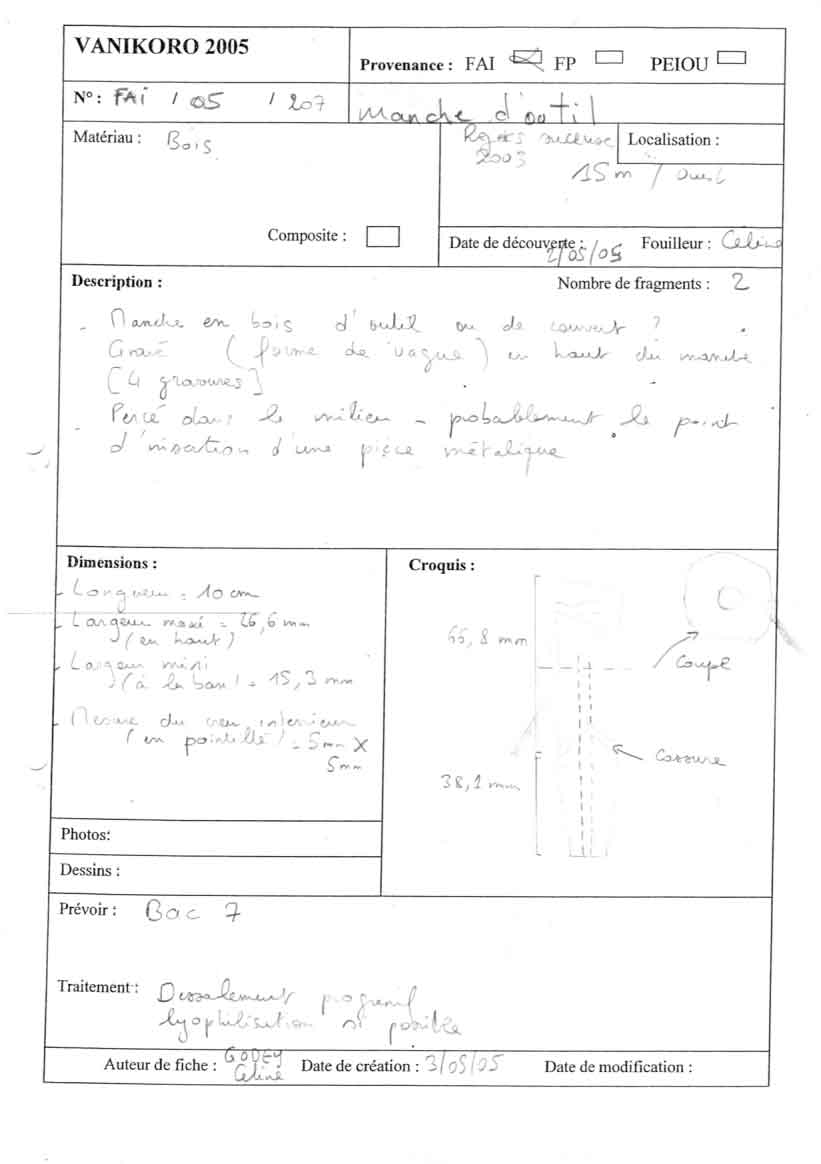 VANIKORO 2005
Provenance : FAI FP PEIOU
N° : FAI / 05 / 207
Manche d'outil
Matériau : Bois
Rejets suceuse
2003
Localisation :
15m / Ouest
Composite :
Date de découverte : 2/05/05 Fouilleur : Céline
Description : Nombre de fragments : 2
- Manche en bois d'outil ou de couvert ?
Gravé (forme de vague) en haut du manche
[4 gravures]
- Percé dans le milieu - probablement le point
d'insertion d'une pièce métalique
Dimensions :
- Longueur = 10 cm
- Largeur maxi = 26,6 mm
(en haut)
- Largeur mini
(à la base) = 15,3 mm
- Mesure du creu interieur
(en pointillé) = 5mm X
5mm
Croquis :
65,8 mm
Coupe
Cassure
38,1 mm
Photos:
Dessins :
Prévoir : Bac 7
Traitement : Dessalement progressif
lyophilisation si possible
Auteur de fiche : GODEY
Céline
Date de création : 3/05/05 Date de modification :